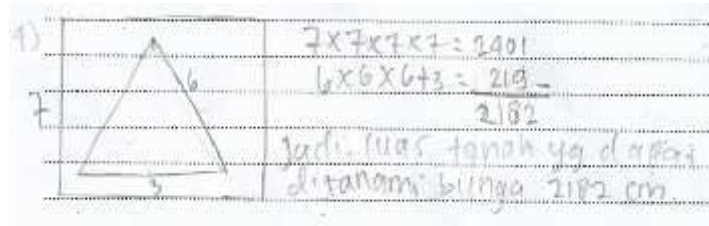 1)
7
6
3
7x7x7x7 = 2401
6x6x6+3 = 219 -
2182
Jadi. luas tanah yg dapat
ditanami bunga 2182 cm.